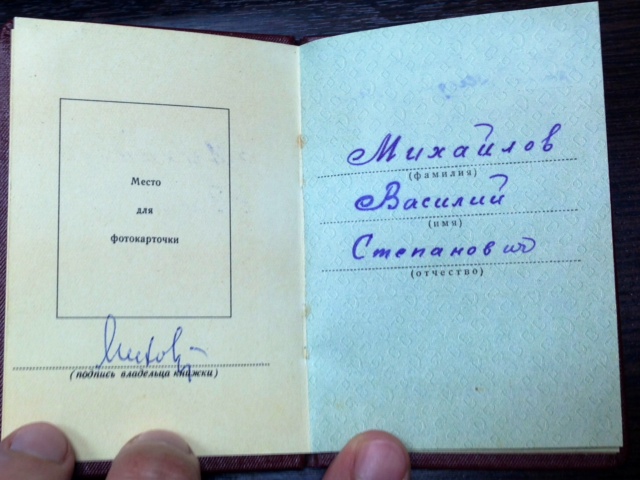 Место
для
фотокарточки
(подпись владельца книжки)
Михайлов
(фамилия)
Василий
(имя)
Степанович
(отчество)